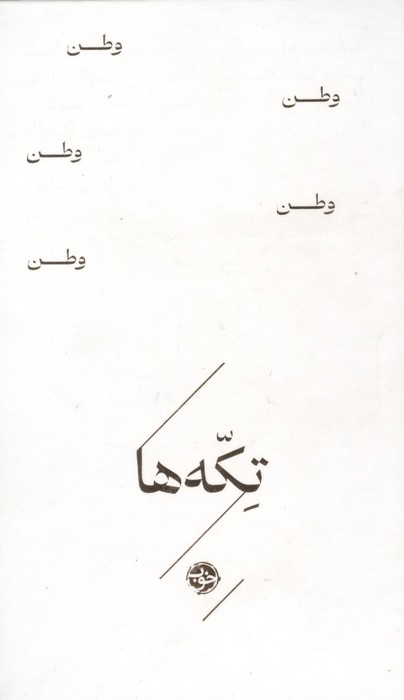 وطن
وطن
وطن
وطن
وطن
تِکّه‌ها
خوب